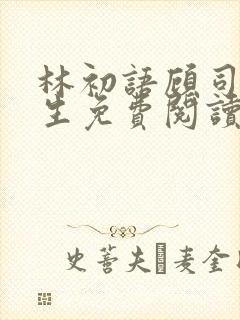 林初語顧司
生免費閱讀
史蒂夫�麦奎